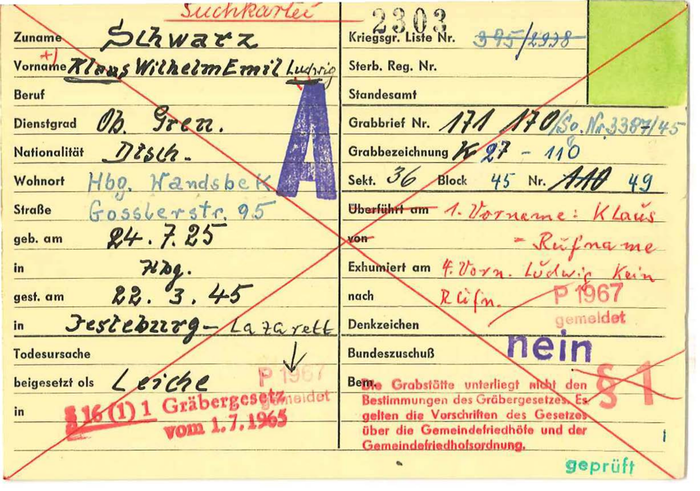 Suchkartei
2303
Zuname Schwarz
Vorname Klaus Wilhelm Emil Ludwig
Beruf
Dienstgrad Ob. Gren.
Nationalität Dtsch.
Wohnort Hbg. Wandsbek
Straße Gosslerstr. 95
geb. am 24.7.25
in Hbg.
gest. am 22.3.45
in Jesteburg - Lazarett
Todesursache
beigesetzt als Leiche
in
P 1967
gemeldet
§ 16 (1) 1 Gräbergesetz
vom 1.7.1965
A
Kriegsgr. Liste Nr. 395/2938
Sterb. Reg. Nr.
Standesamt
Grabbrief Nr. 171 170/So. Nr. 3387/45
Grabbezeichnung K 27 - 110
Sekt. 36 Block 45 Nr. 110 49
Überführt am 1. Vorname: Klaus
von = Rufname
Exhumiert am 4. Vorn. Ludwig kein
nach Rufn.
P 1967
gemeldet
Denkzeichen
Bundeszuschuß nein
Bem.
§ 1
Die Grabstätte unterliegt nicht den
Bestimmungen des Gräbergesetzes. Es
gelten die Vorschriften des Gesetzes
über die Gemeindefriedhöfe und der
Gemeindefriedhofsordnung.
geprüft